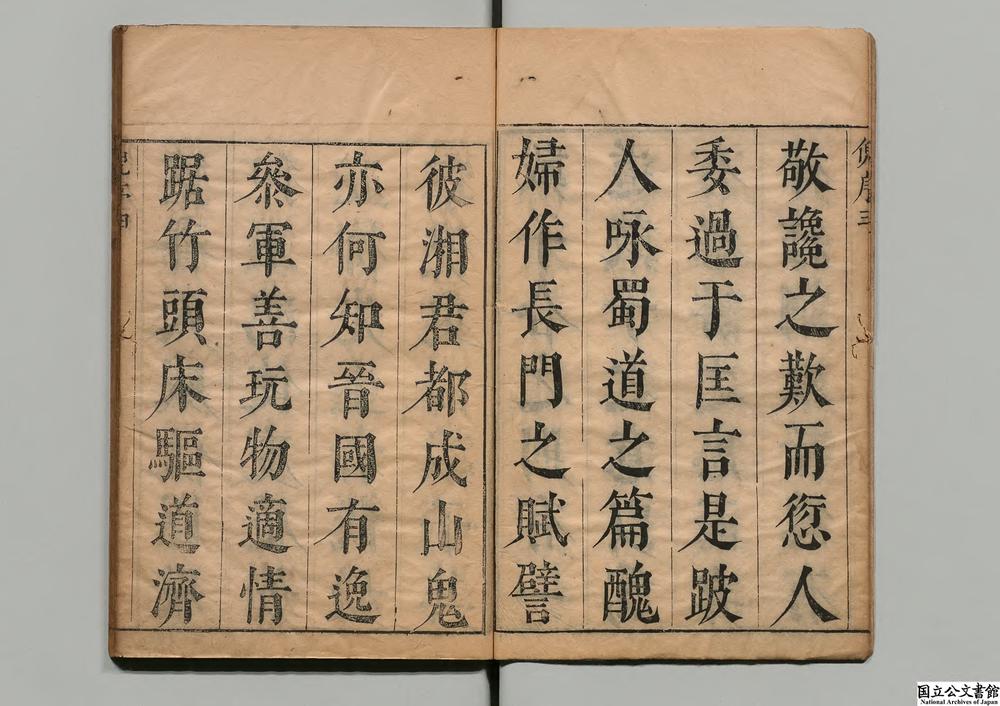 敬讒之歎而愆人
委過于匡言是跛
人咏蜀道之篇醜
婦作長門之賦譬
彼湘君都成山鬼
亦何知晉國有逸
叅軍善玩物適情
踞竹頭床驅道濟
国立公文書館
National Archives of Japan